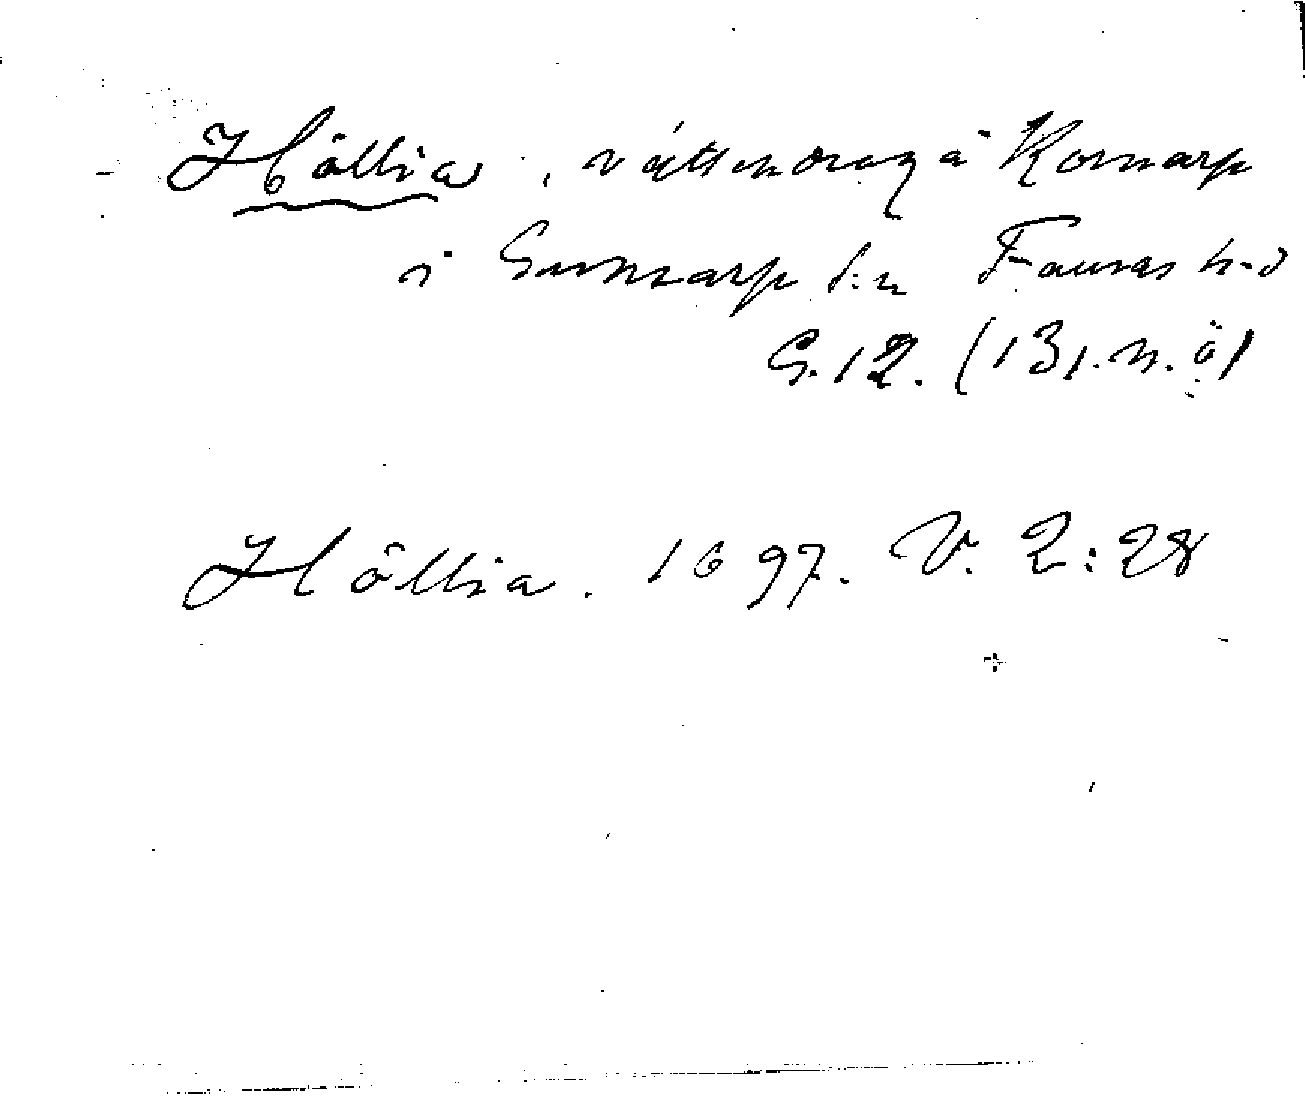 Höllia, vattendrag å Kornarp
i Gunnarp s:n Fauras h-d
G. 12. (131. n. ö)
Höllia. 1697. V. 2:28